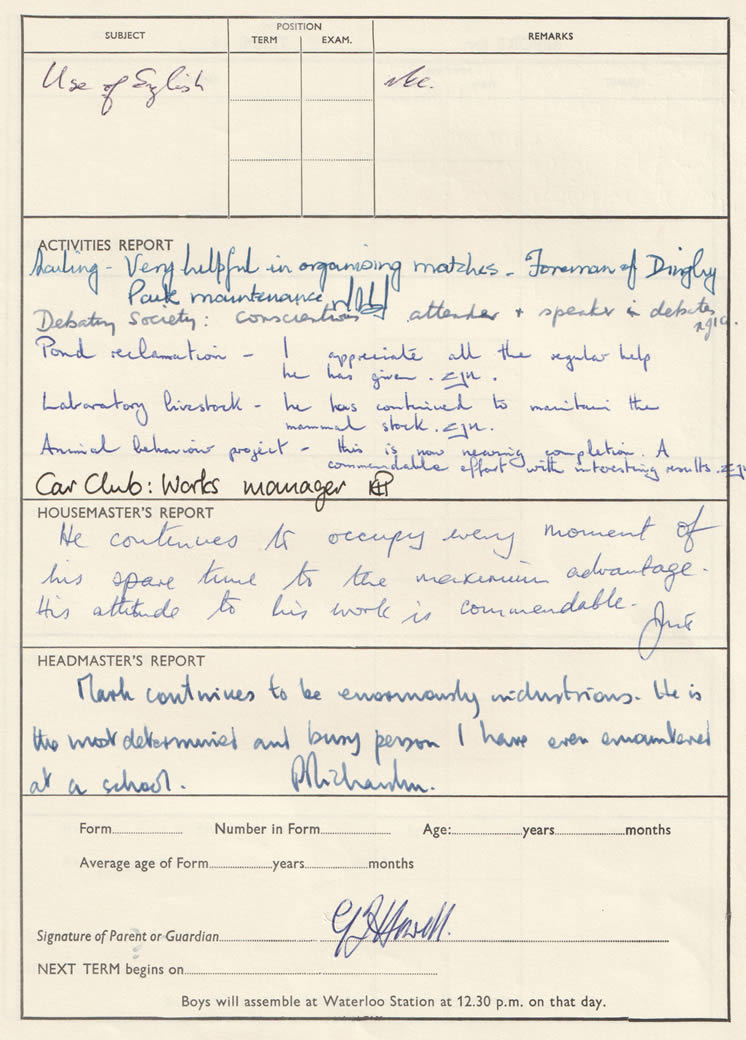 SUBJECT POSITION REMARKS
TERM EXAM.
Use of English
ACTIVITIES REPORT
Sailing - Very helpful in organising matches. Foreman of Dingley
Park maintenance.
Debating Society: conscientious attender + speaker in debates
Pond reclamation - I appreciate all the regular help
he has given. EJN.
Laboratory livestock - he has continued to maintain the
mammal stock. EJN.
Animal behaviour project - this is now nearing completion. A
commendable effort with interesting results. EJN
Car Club: Works manager
HOUSEMASTER'S REPORT
He continues to occupy every moment of
his spare time to the maximum advantage.
His attitude to his work is commendable.
HEADMASTER'S REPORT
Mark continues to be enormously industrious. He is
the most determined and busy person I have ever encountered
at a school. P Richardson.
Form Number in Form Age: years months
Average age of Form years months
Signature of Parent or Guardian
NEXT TERM begins on
Boys will assemble at Waterloo Station at 12.30 p.m. on that day.